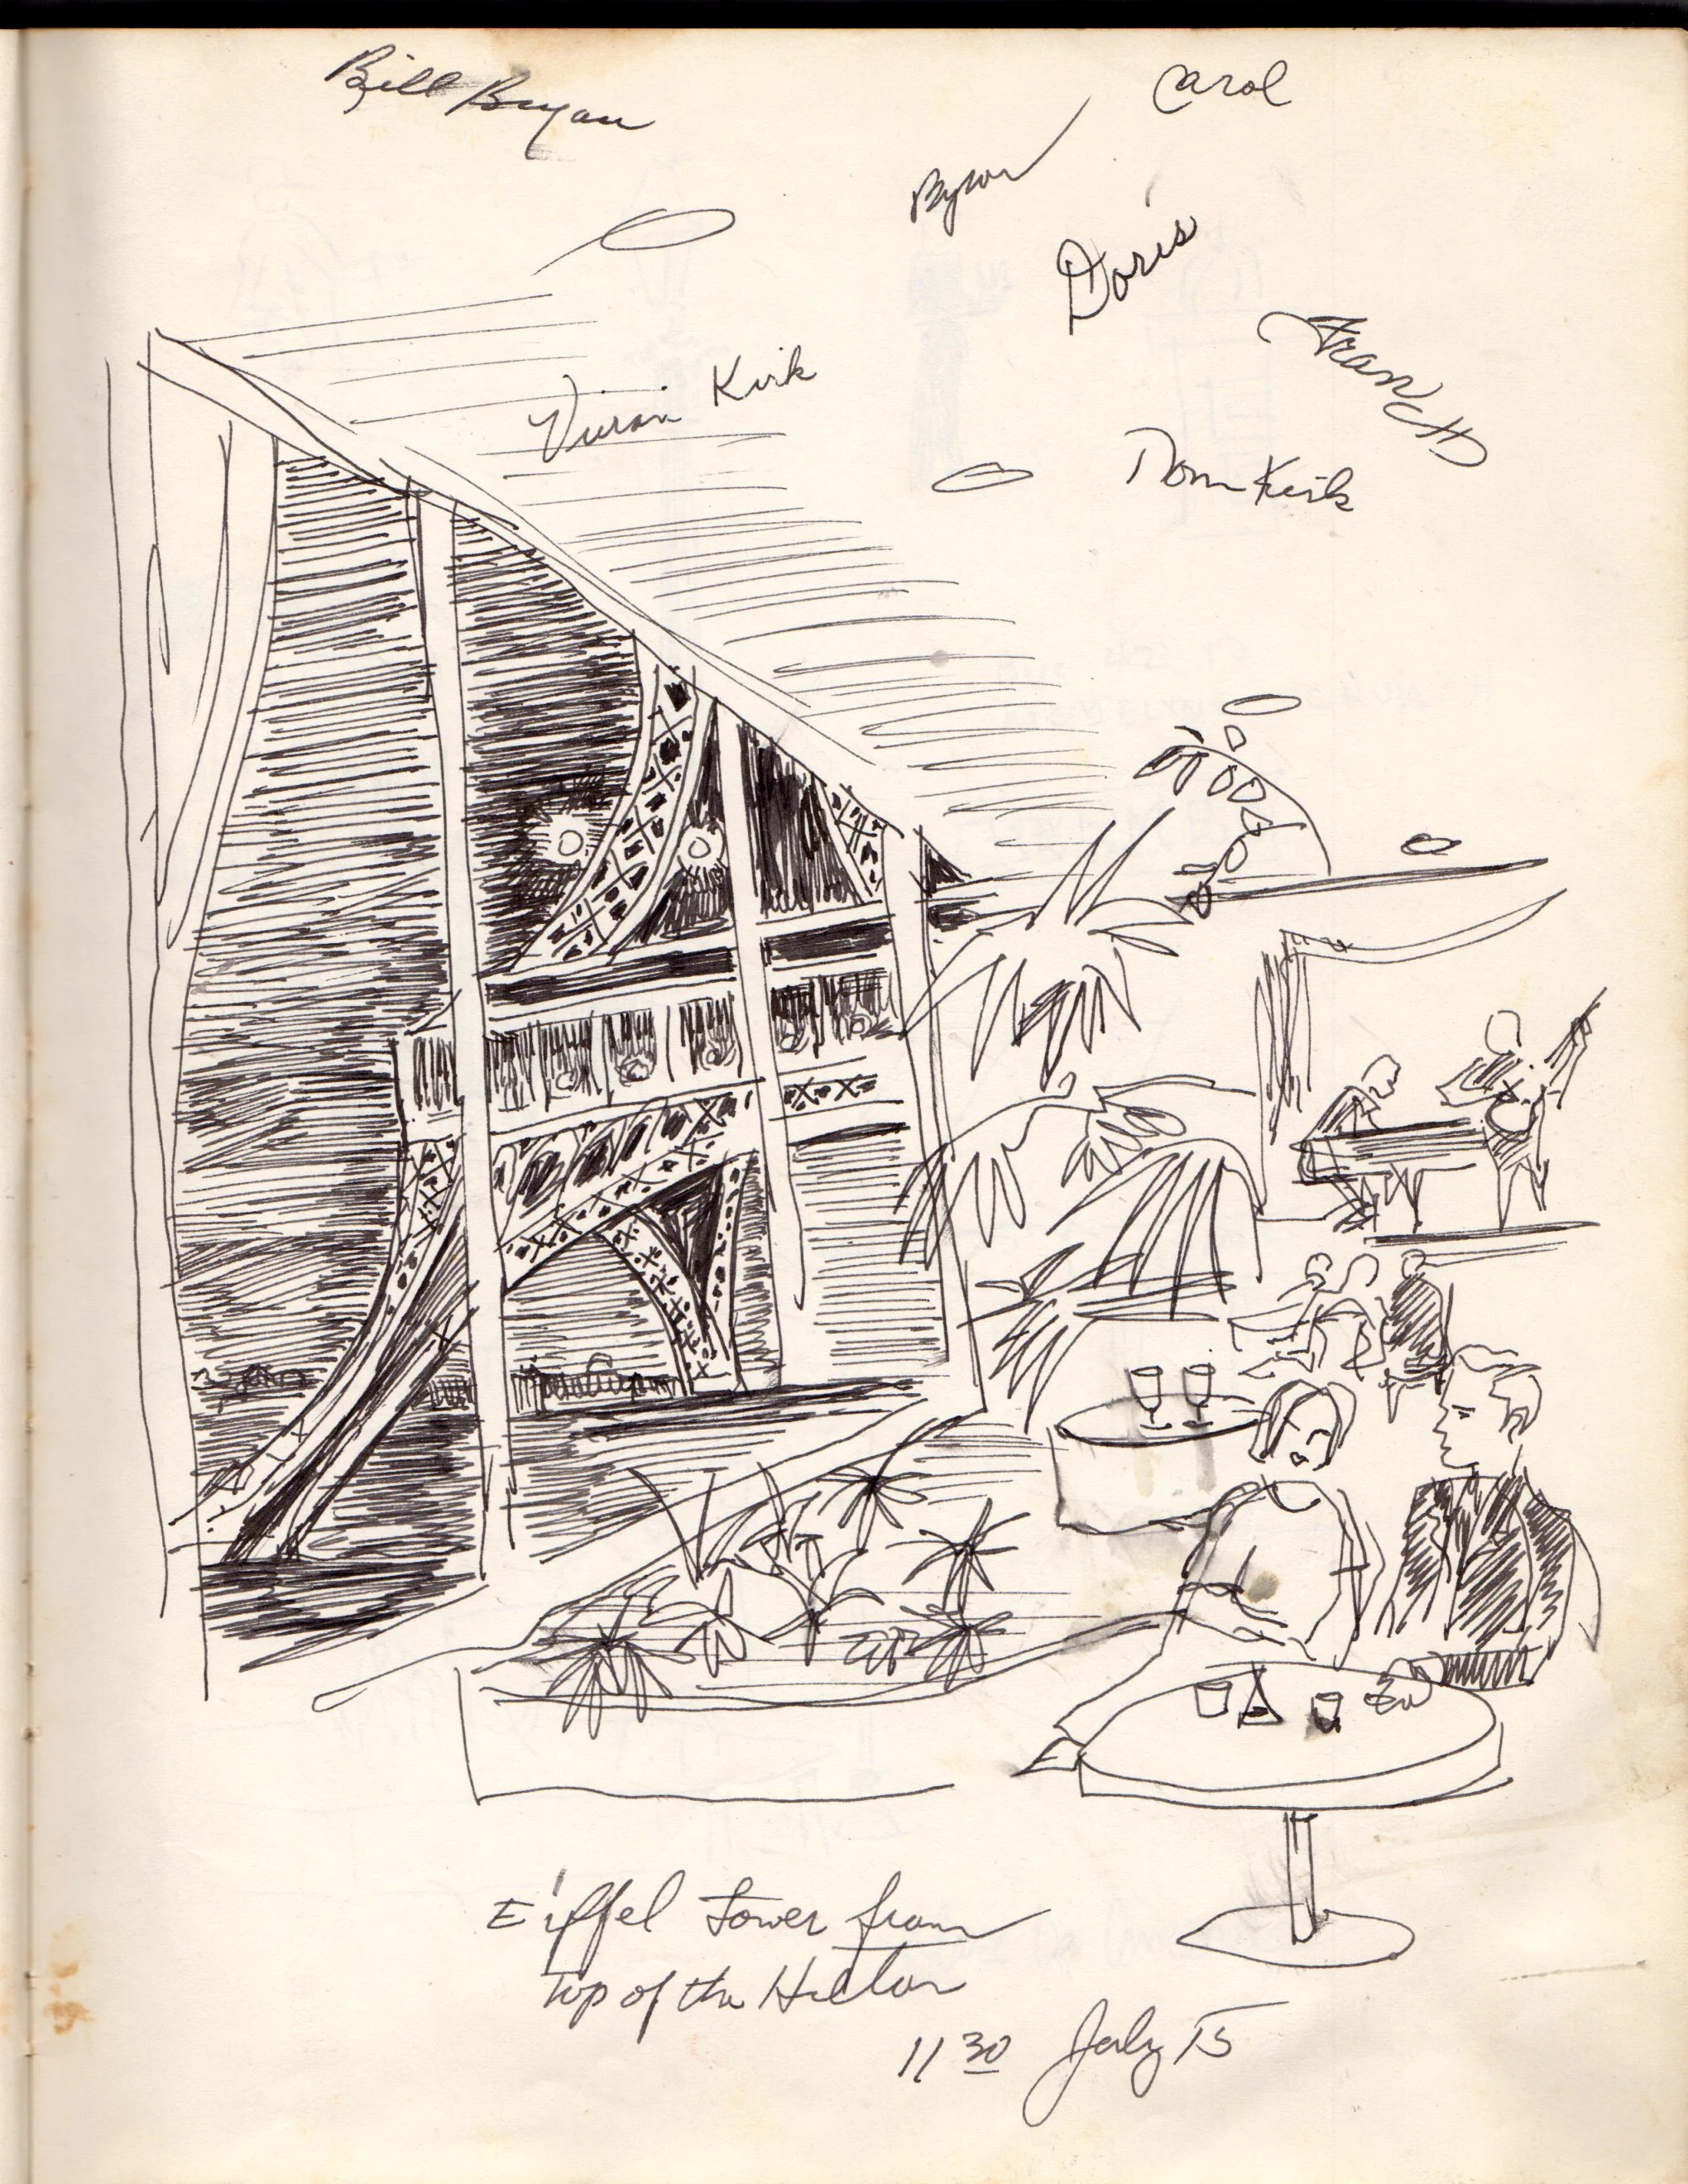 Bill Bryan
Carol
Byron
Doris
Fran
Vivian Kirk
Tom Kirk
Eiffel Tower from
Top of the Hilton
11 30 July 15